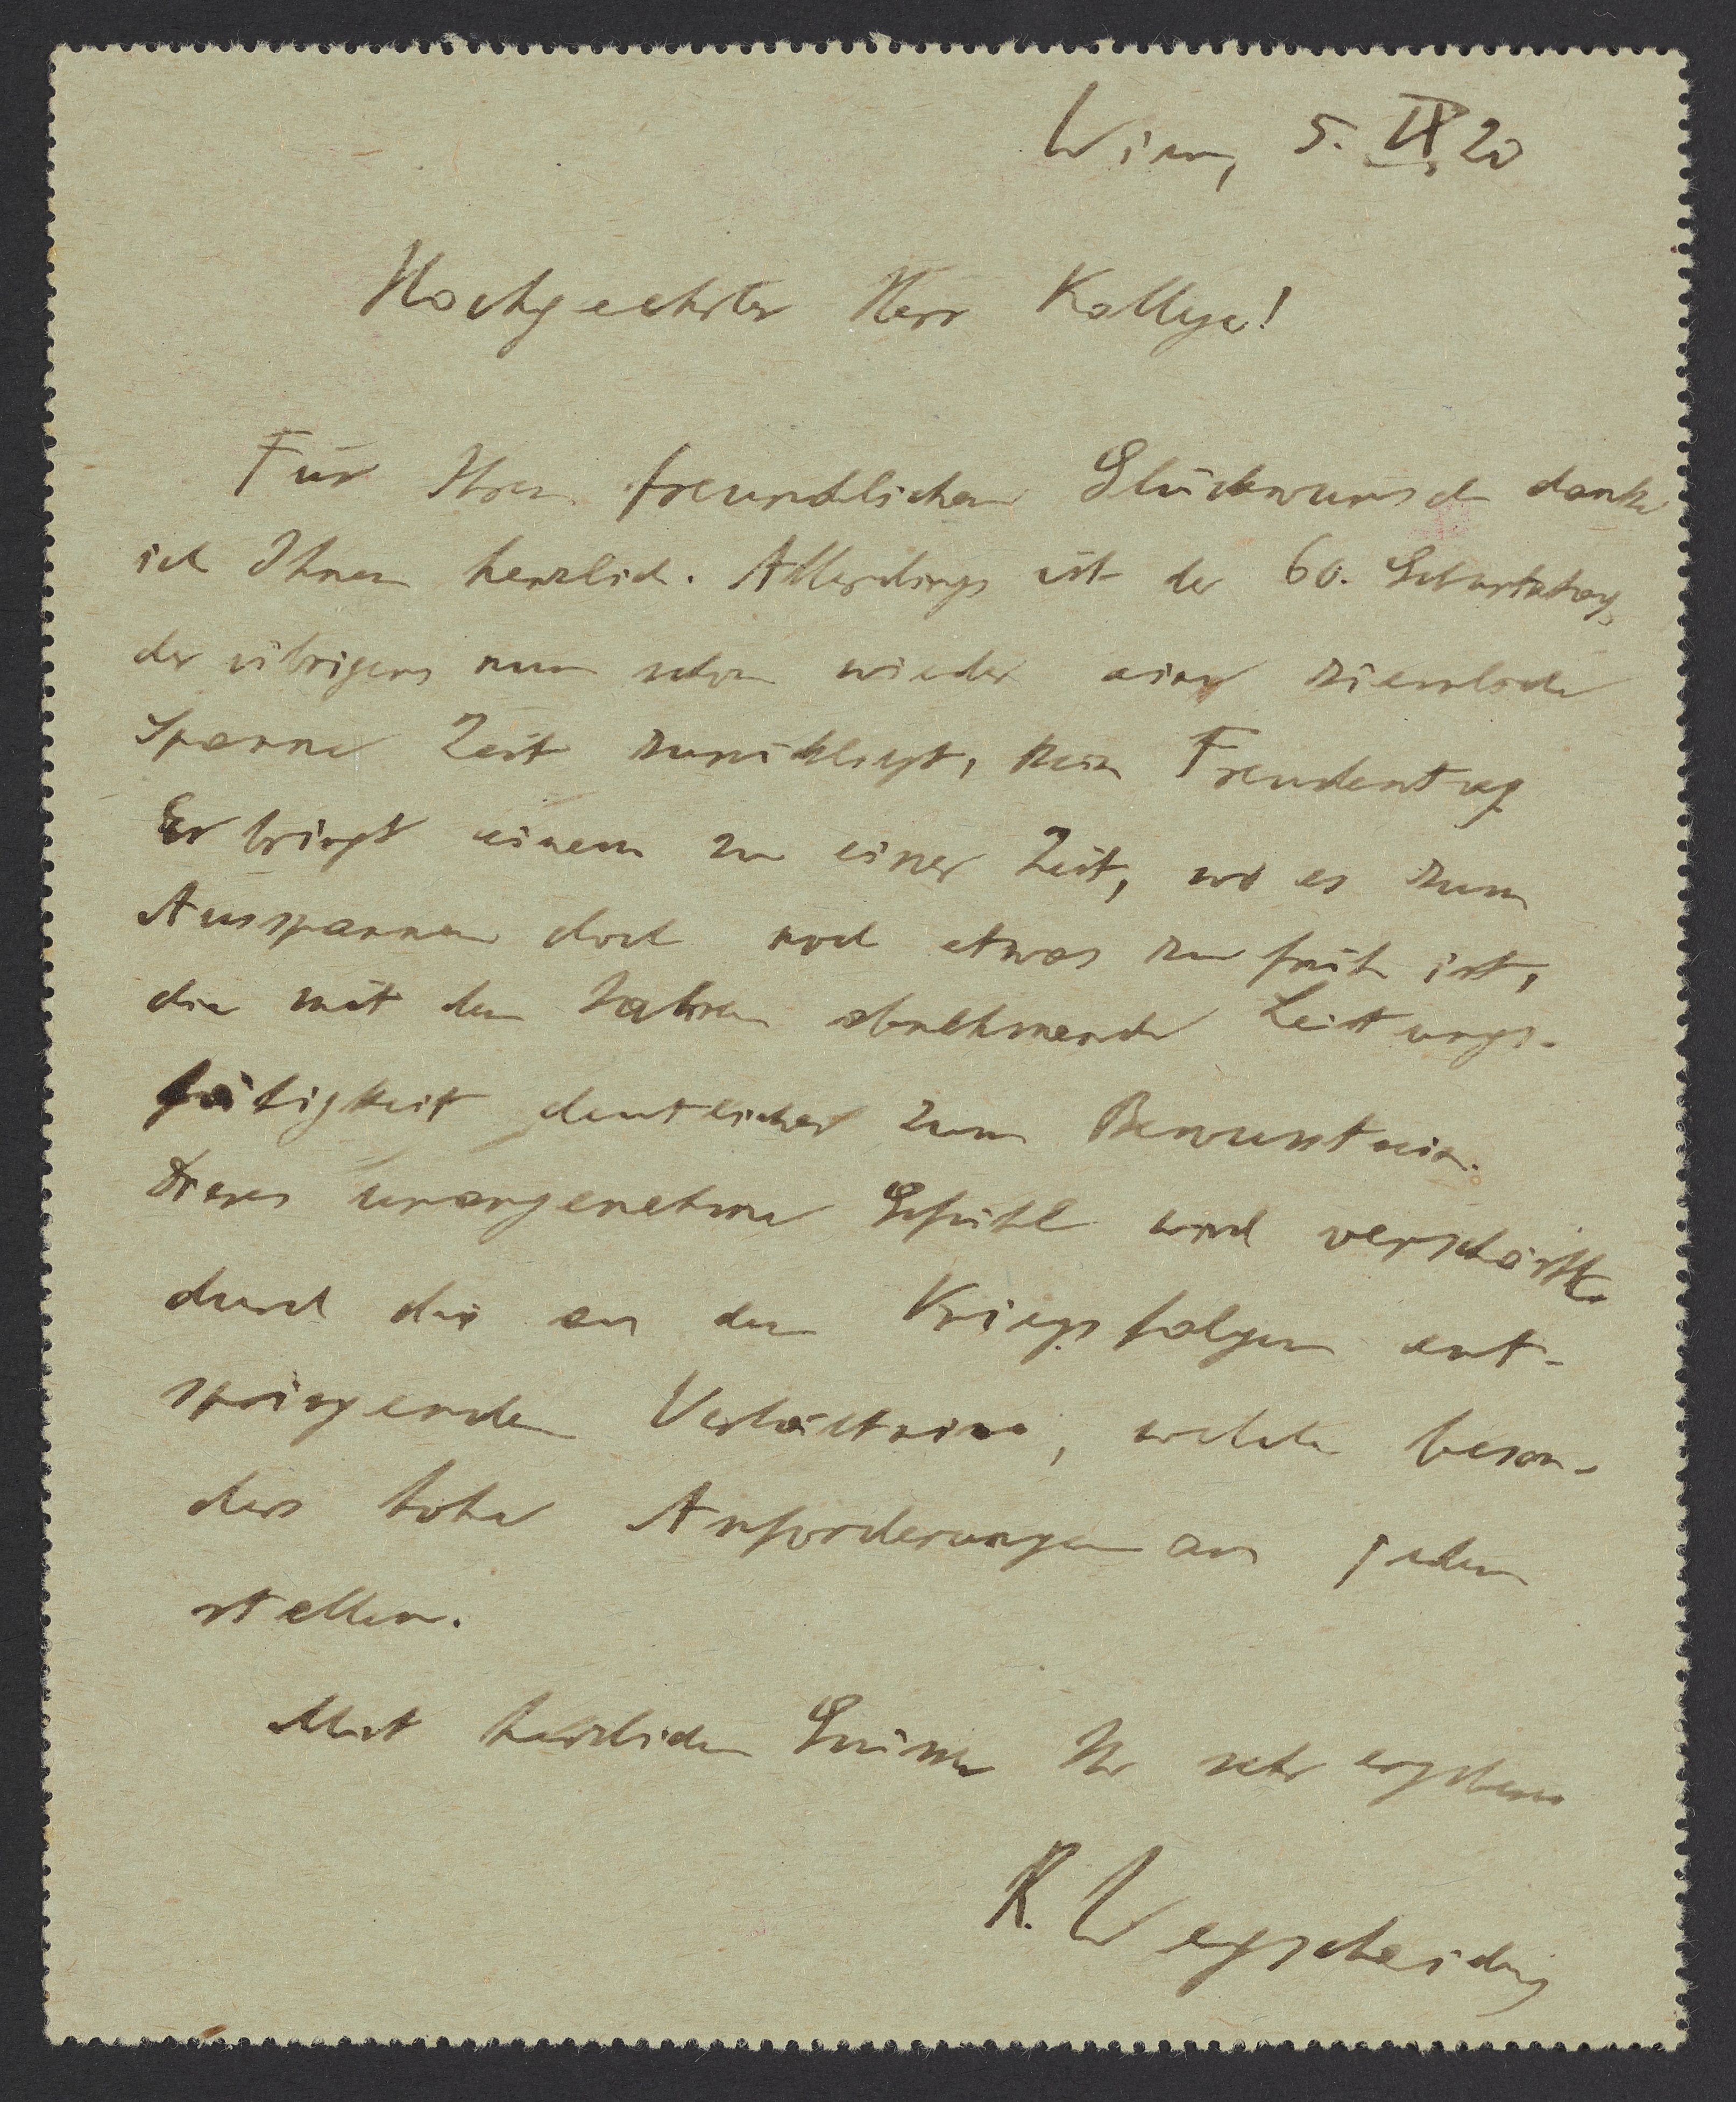 Wien, 5. IX. 20
Hochgeehrter Herr Kollege!
Für Ihren freundlichen Glückwunsch danke
ich Ihnen herzlich. Allerdings ist der 60. Geburtstag,
der übrigens nun schon wieder eine ziemliche
Spanne Zeit zurückliegt, kein Freudentag
Er bringt einem zu einer Zeit, wo es zum
Ausspannen doch noch etwas zu früh ist,
die mit den Jahren abnehmende Leistungs-
fähigkeit deutlicher zum Bewusstsein.
Dieses unangenehme Gefühl wird verschärft
durch die aus den Kriegsfolgen ent-
springenden Verhältnisse, welche beson-
ders hohe Anforderungen an jeden
stellen.
Mit herzlichen Grüssen Ihr sehr ergebener
R. Wegscheider